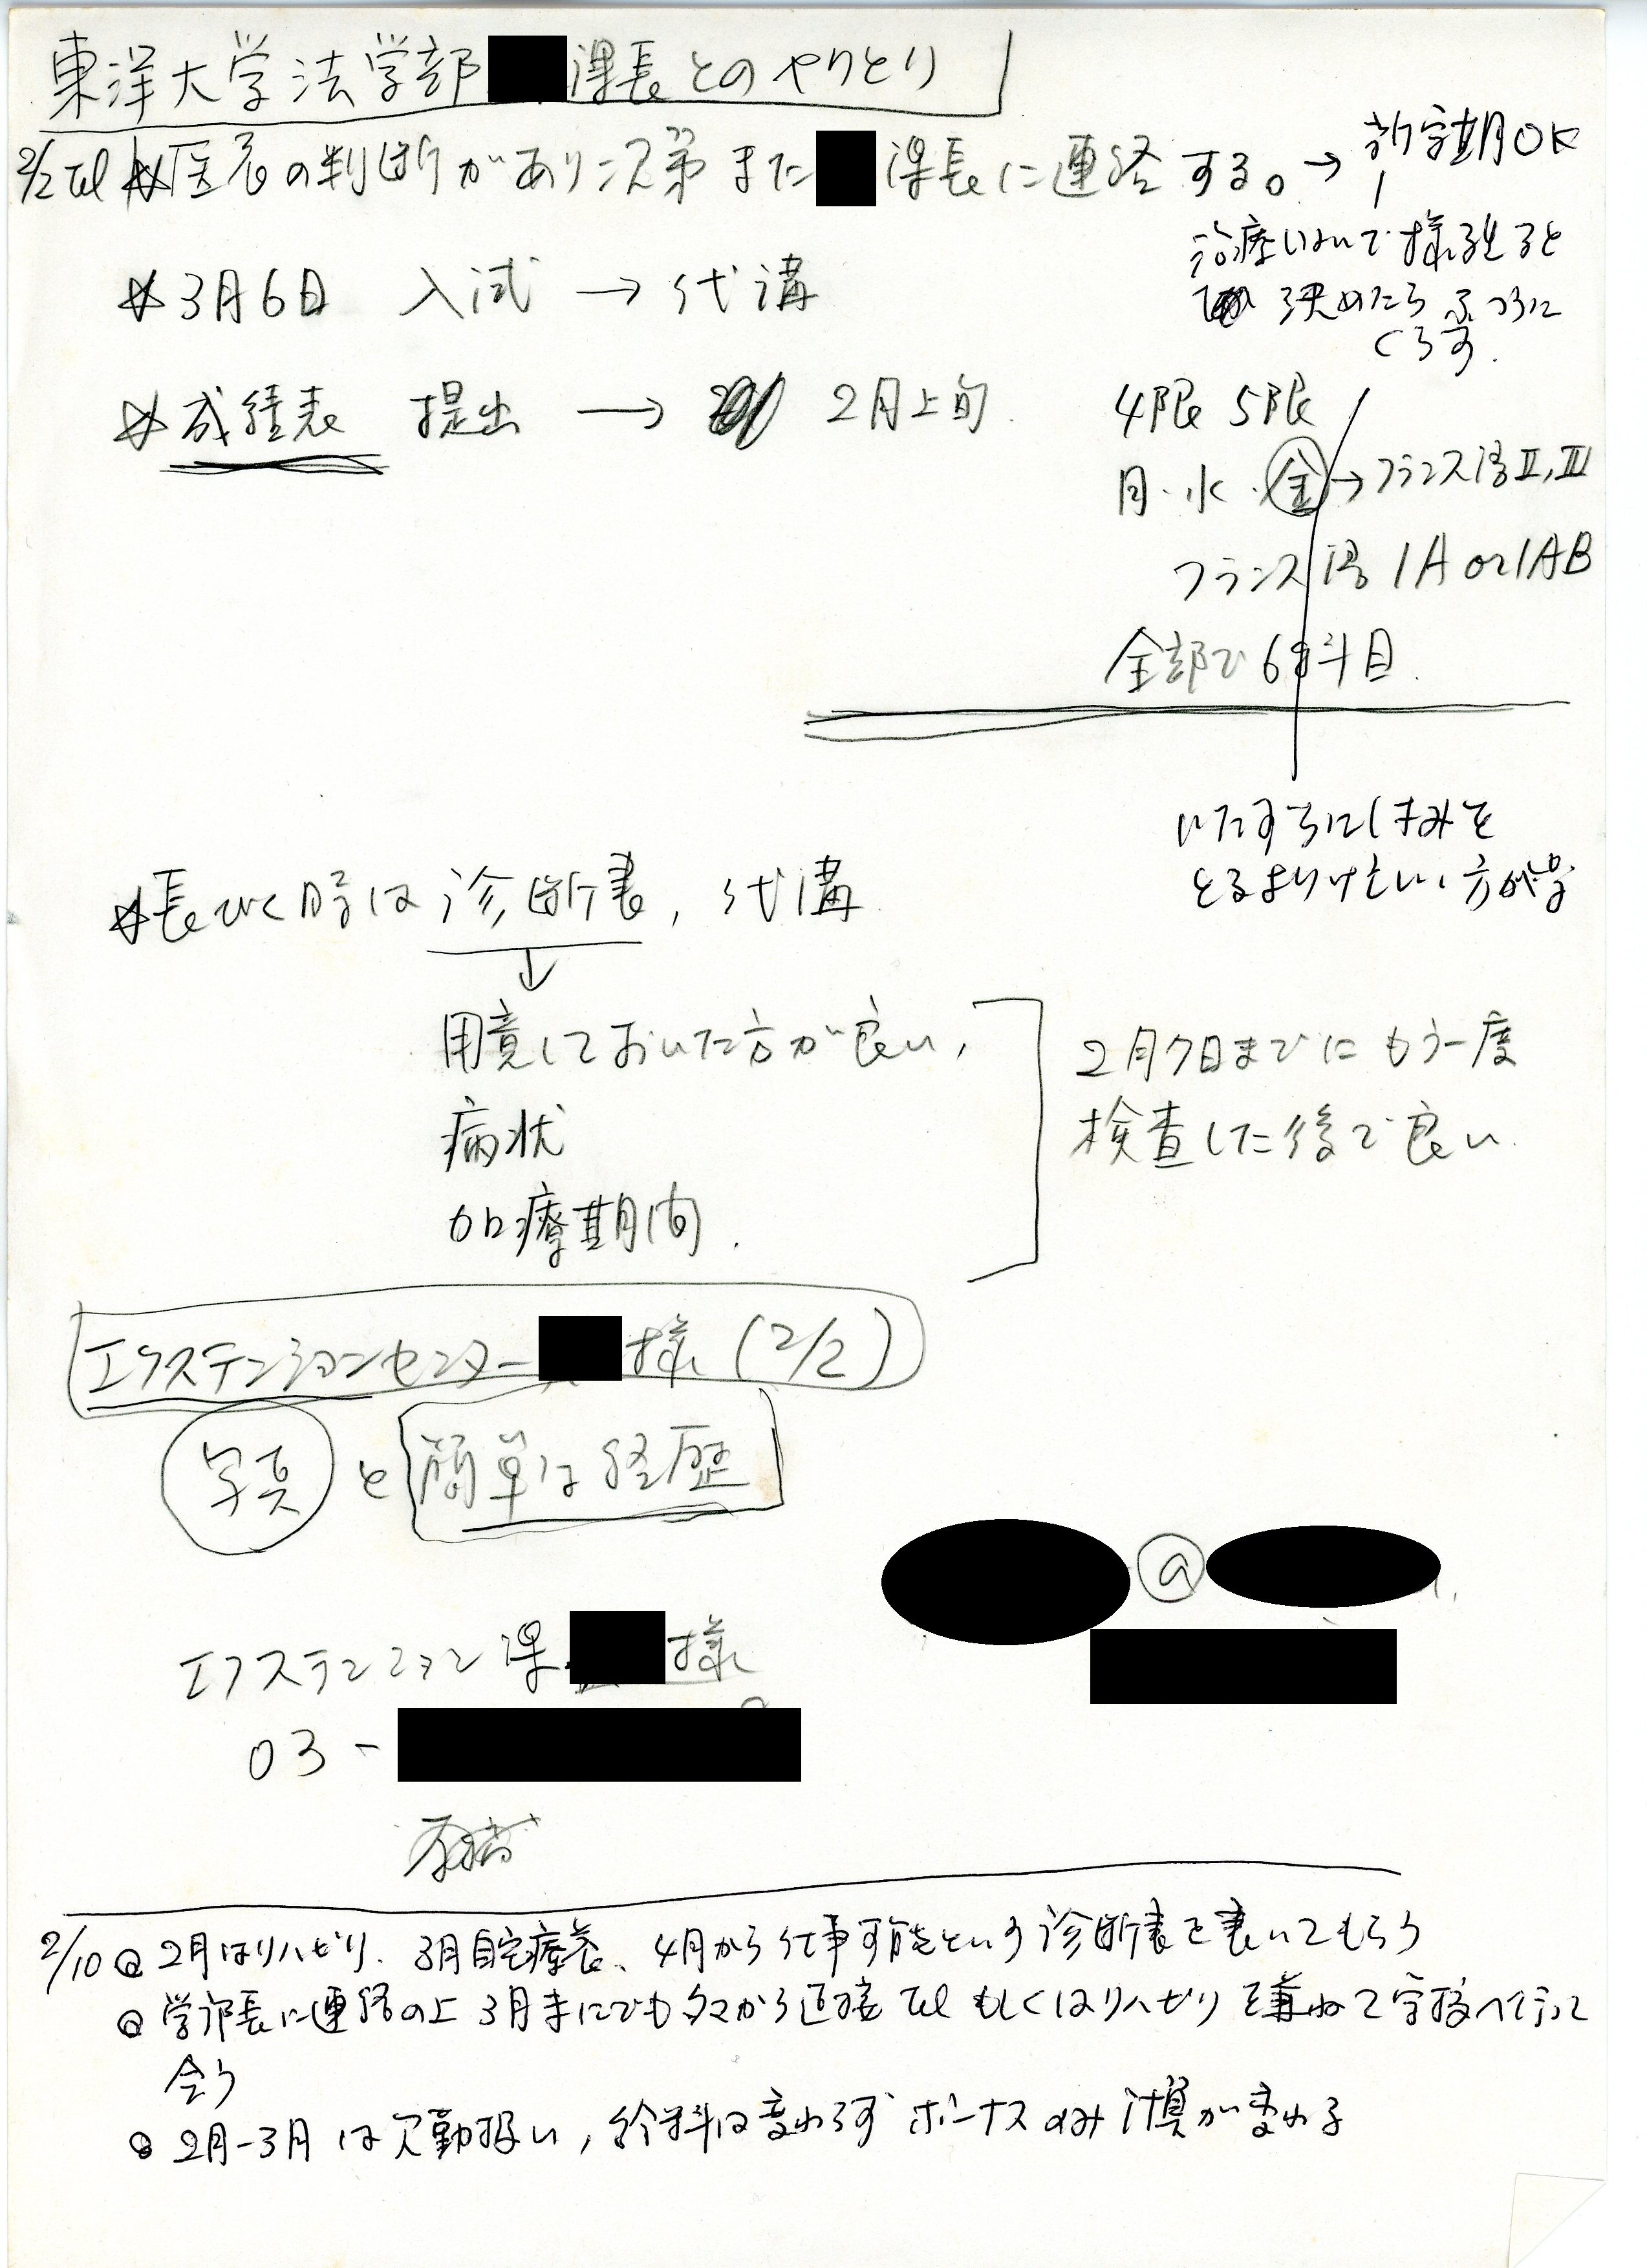 東洋大学法学部 課長とのやりとり
2/2 Tel 医者の判断があり次第また 課長に連絡する。→ 新学期OK
治療しないで様子を見ると
決めたら ふつうに
くらす.
☆3月6日 入試 → 代講
☆成績表 提出 → 2月上旬.
4限 5限
月・水・金→フランス語Ⅱ,Ⅲ
フランス語 1A or 1AB
全部で6科目.
☆長びく時は 診断書, 代講
↓
用意しておいた方が良い,
病状
加療期間.
2月7日までに もう一度
検査した後で良い.
エクステンションセンター 様 (2/2)
写真 と 簡単な経歴
@
エクステンション課 様
03-
2/10 2月はリハビリ、3月自宅療養、4月から仕事可能という診断書を書いてもらう
学部長に連絡の上 3月末にでも から直接 Tel もしくはリハビリを兼ねて学校へ行って
会う
2月-3月は欠勤扱い, 給料は変わらず ボーナスのみ計算が変わる